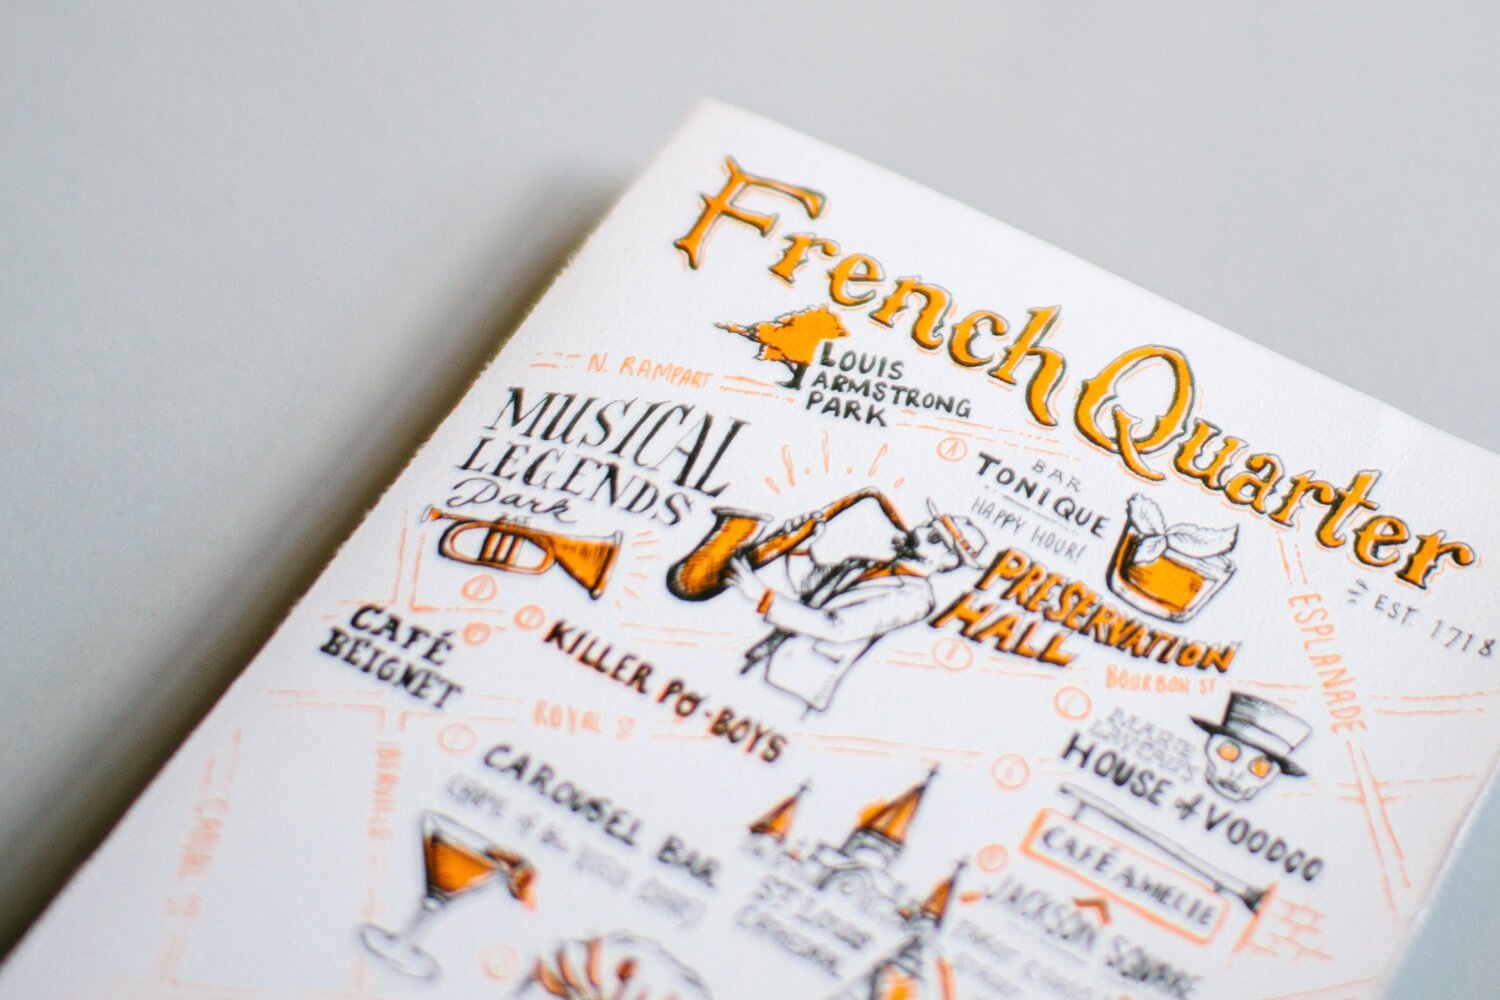 French Quarter
EST. 1718
LOUIS
ARMSTRONG
PARK
N. RAMPART
MUSICAL
LEGENDS
Park
BAR
TONIQUE
HAPPY HOUR!
PRESERVATION
HALL
ESPLANADE
BOURBON ST
CAFÉ
BEIGNET
KILLER PO-BOYS
ROYAL ST
MARIE
LAVEAU'S
HOUSE of VOODOO
CAROUSEL BAR
BIENVILLE
CANAL ST
CAFÉ AMELIE
ST. LOUIS
JACKSON SQUARE